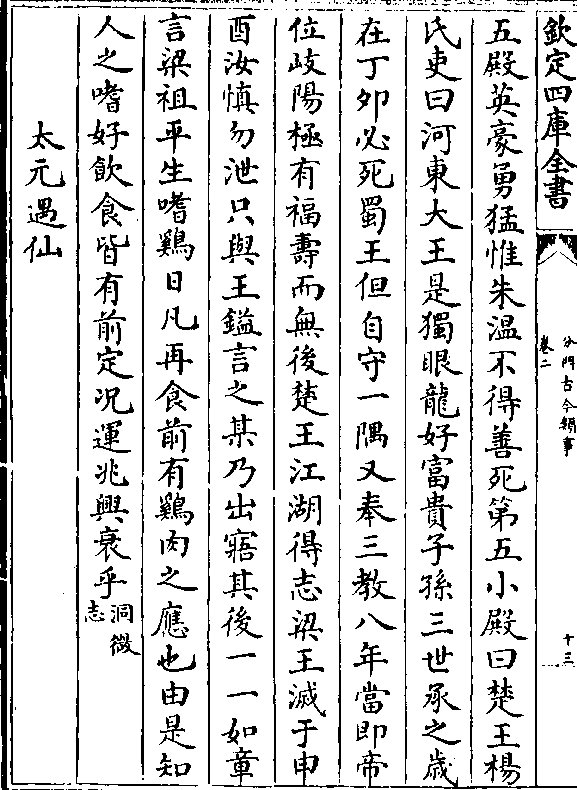 欽定四庫全書
分門古今類事
卷二
十三
五殿英豪勇猛惟朱温不得善死第五小殿曰楚王楊
氏吏曰河東大王是獨眼龍好富貴子孫三世承之歲
在丁夘必死蜀王但自守一隅又奉三教八年當即帝
位岐陽極有福壽而無後楚王江湖得志梁王滅于申
酉汝慎勿泄只與王鎰言之某乃出寤其後一一如章
言梁祖平生嗜鷄日凡再食前有鷄肉之應也由是知
人之嗜好飲食皆有前定况運兆興衰乎洞微志
太元遇仙